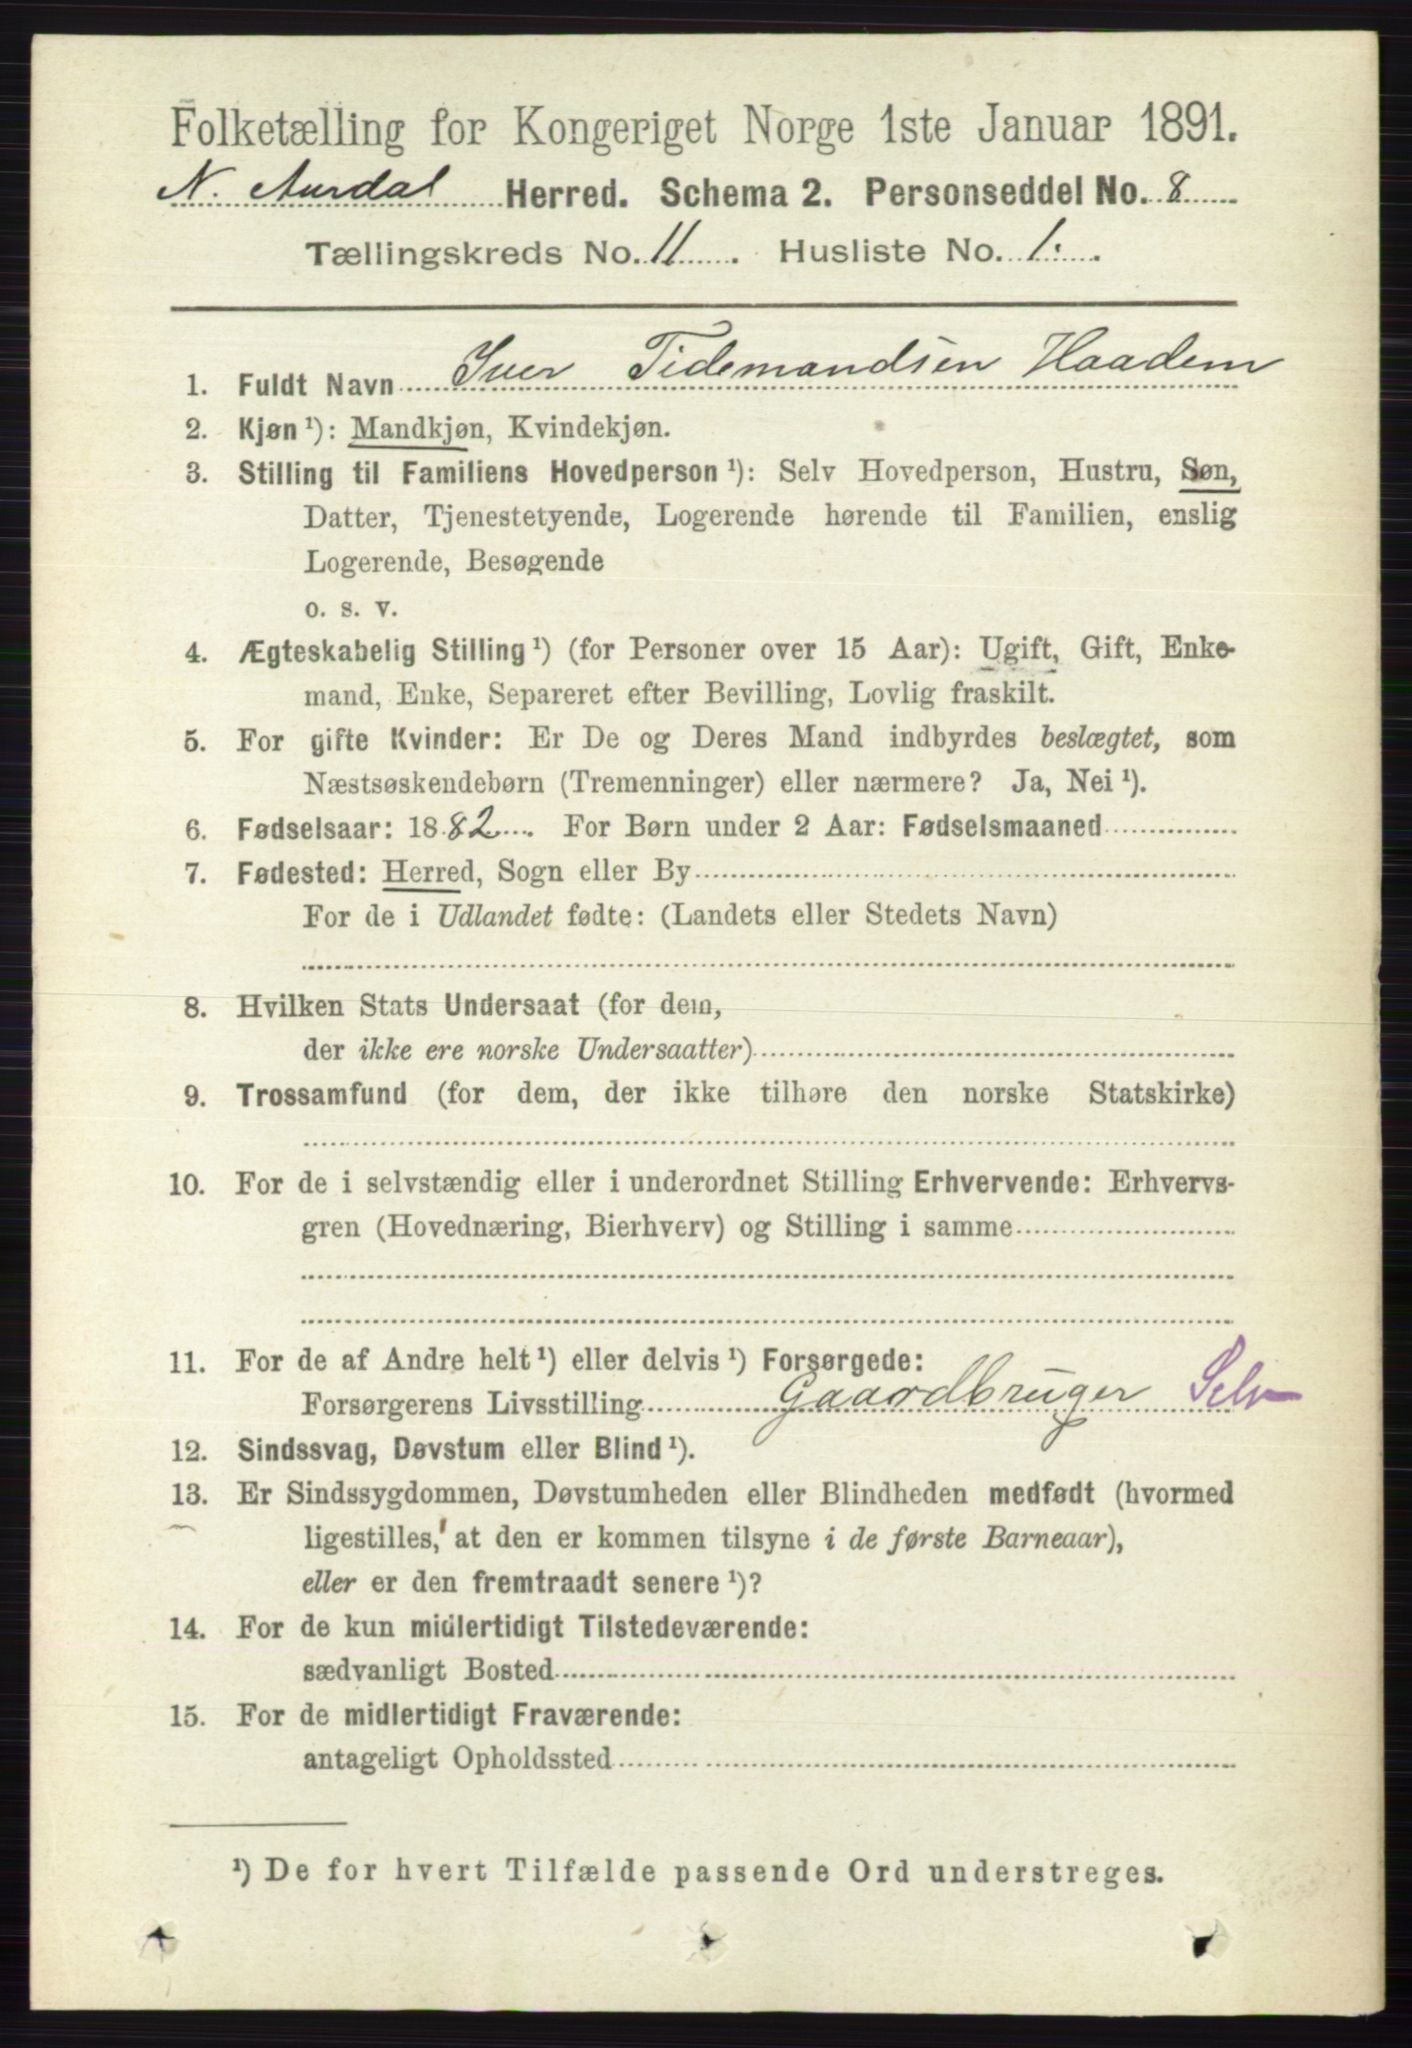 Folketælling for Kongeriget Norge 1ste Januar 1891.
N. Aurdal Herred. Schema 2. Personseddel No. 8
Tællingskreds No. 11. Husliste No. 1.
1. Fuldt Navn Iver Tidemandsen Haadem
2. Kjøn ¹): Mandkjøn, Kvindekjøn.
3. Stilling til Familiens Hovedperson ¹): Selv Hovedperson, Hustru, Søn,
Datter, Tjenestetyende, Logerende hørende til Familien, enslig
Logerende, Besøgende
o. s. v.
4. Ægteskabelig Stilling ¹) (for Personer over 15 Aar): Ugift, Gift, Enke-
mand, Enke, Separeret efter Bevilling, Lovlig fraskilt.
5. For gifte Kvinder: Er De og Deres Mand indbyrdes beslægtet, som
Næstsøskendebørn (Tremenninger) eller nærmere? Ja, Nei ¹).
6. Fødselsaar: 1882. For Børn under 2 Aar: Fødselsmaaned
7. Fødested: Herred, Sogn eller By
For de i Udlandet fødte: (Landets eller Stedets Navn)
8. Hvilken Stats Undersaat (for dem,
der ikke ere norske Undersaatter)
9. Trossamfund (for dem, der ikke tilhøre den norske Statskirke)
10. For de i selvstændig eller i underordnet Stilling Erhvervende: Erhvervs-
gren (Hovednæring, Bierhverv) og Stilling i samme
11. For de af Andre helt ¹) eller delvis ¹) Forsørgede:
Forsørgerens Livsstilling Gaardbruger Selv
12. Sindssvag, Døvstum eller Blind ¹).
13. Er Sindssygdommen, Døvstumheden eller Blindheden medfødt (hvormed
ligestilles, at den er kommen tilsyne i de første Barneaar),
eller er den fremtraadt senere ¹)?
14. For de kun midlertidigt Tilstedeværende:
sædvanligt Bosted
15. For de midlertidigt Fraværende:
antageligt Opholdssted
¹) De for hvert Tilfælde passende Ord understreges.